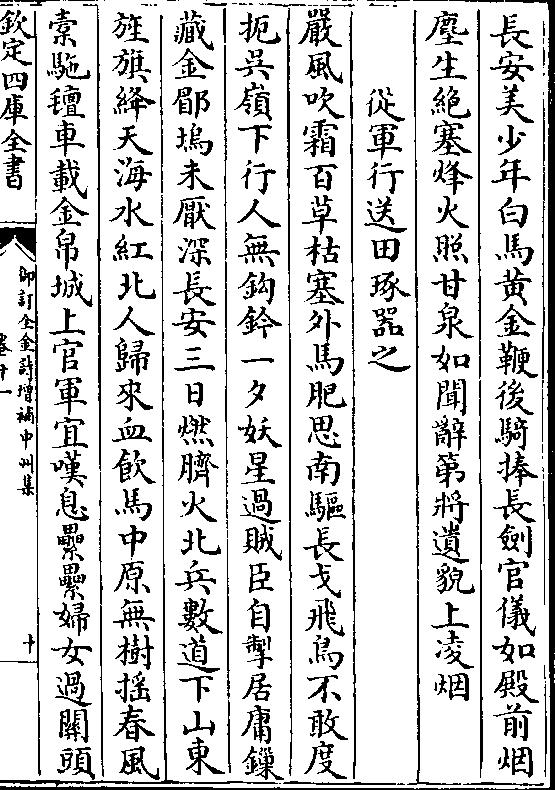 長安美少年白馬黄金鞭後騎捧長劍官儀如殿前烟
塵生絶塞烽火照甘泉如聞辭第將遺貌上凌烟
從軍行送田琢器之
嚴風吹霜百草枯塞外馬肥思南驅長戈飛鳥不敢度
扼吳嶺下行人無鈎鈐一夕妖星過賊臣自掣居庸鏁
藏金郿塢未厭深長安三日燃臍火北兵數道下山東
旌旗絳天海水紅北人歸來血飲馬中原無樹揺春風
橐駞氊車載金帛城上官軍宜嘆息纍纍婦女過關頭
欽定四庫全書
御訂全金詩增補中州集
卷十一
十